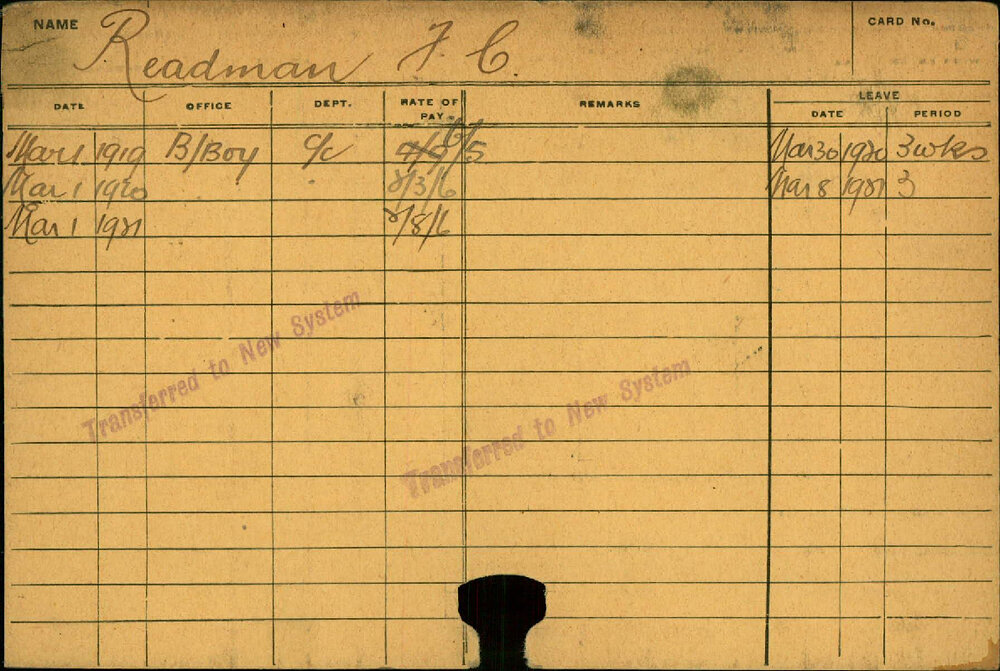 NAME Readman F. C. CARD No.
DATE OFFICE DEPT. RATE OF PAY. REMARKS LEAVE
DATE PERIOD
Mar 1 1919 B/Boy C/c 6/5 Mar 30 1920 3 wks
Mar 1 1920 2/3/6 Mar 8 1921 3
Mar 1 1921 2/8/6
Transferred to New System
Transferred to New System